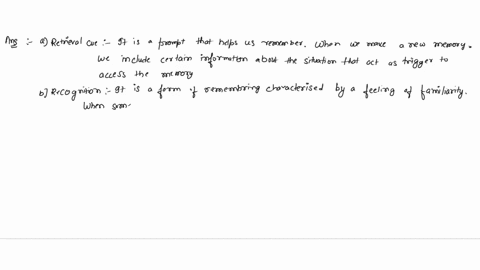 Ans :- a) Retrieval cue :- It is a prompt that helps us remember. When we make a new memory.
we include certain information about the situation that act as trigger to
access the memory
b) Recognition :- It is a form of remembring characterised by a feeling of familiarity.
When som-